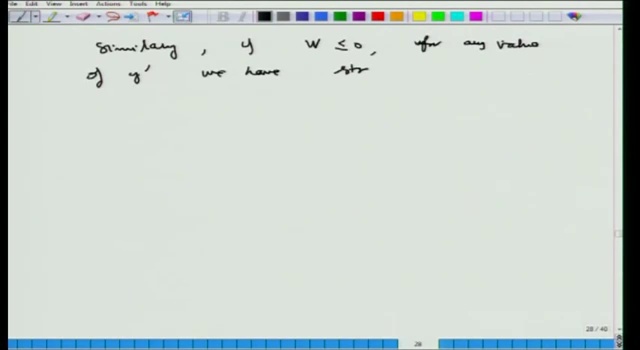 Edit View Insert Actions Tools Help
Similary, if W ≤ 0, for any value
of y' we have str
28 / 40
28